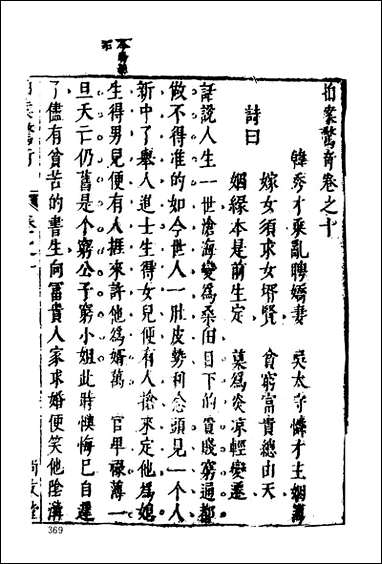 拍案驚奇卷之十
韓秀才乘亂聘嬌妻　吳太守憐才主姻簿
詩曰
嫁女須求女壻賢　貧窮富貴總由天
姻緣本是前生定　莫爲炎凉輕變遷
話說人生一世滄海變爲桑田目下的貴賤窮通都
做不得准的如今世人一肚皮勢利念頭見一个人
新中了舉人進士生得女兒便有人搶來定他爲媳
生得男兒便有人捱來許他爲婿萬一官卑祿薄一
旦夭亡仍舊是个窮公子窮小姐此時懊悔已自遲
了儘有貧苦的書生向富貴人家求婚便笑他陰溝
拍案驚奇　卷之十　一　尚友堂
369